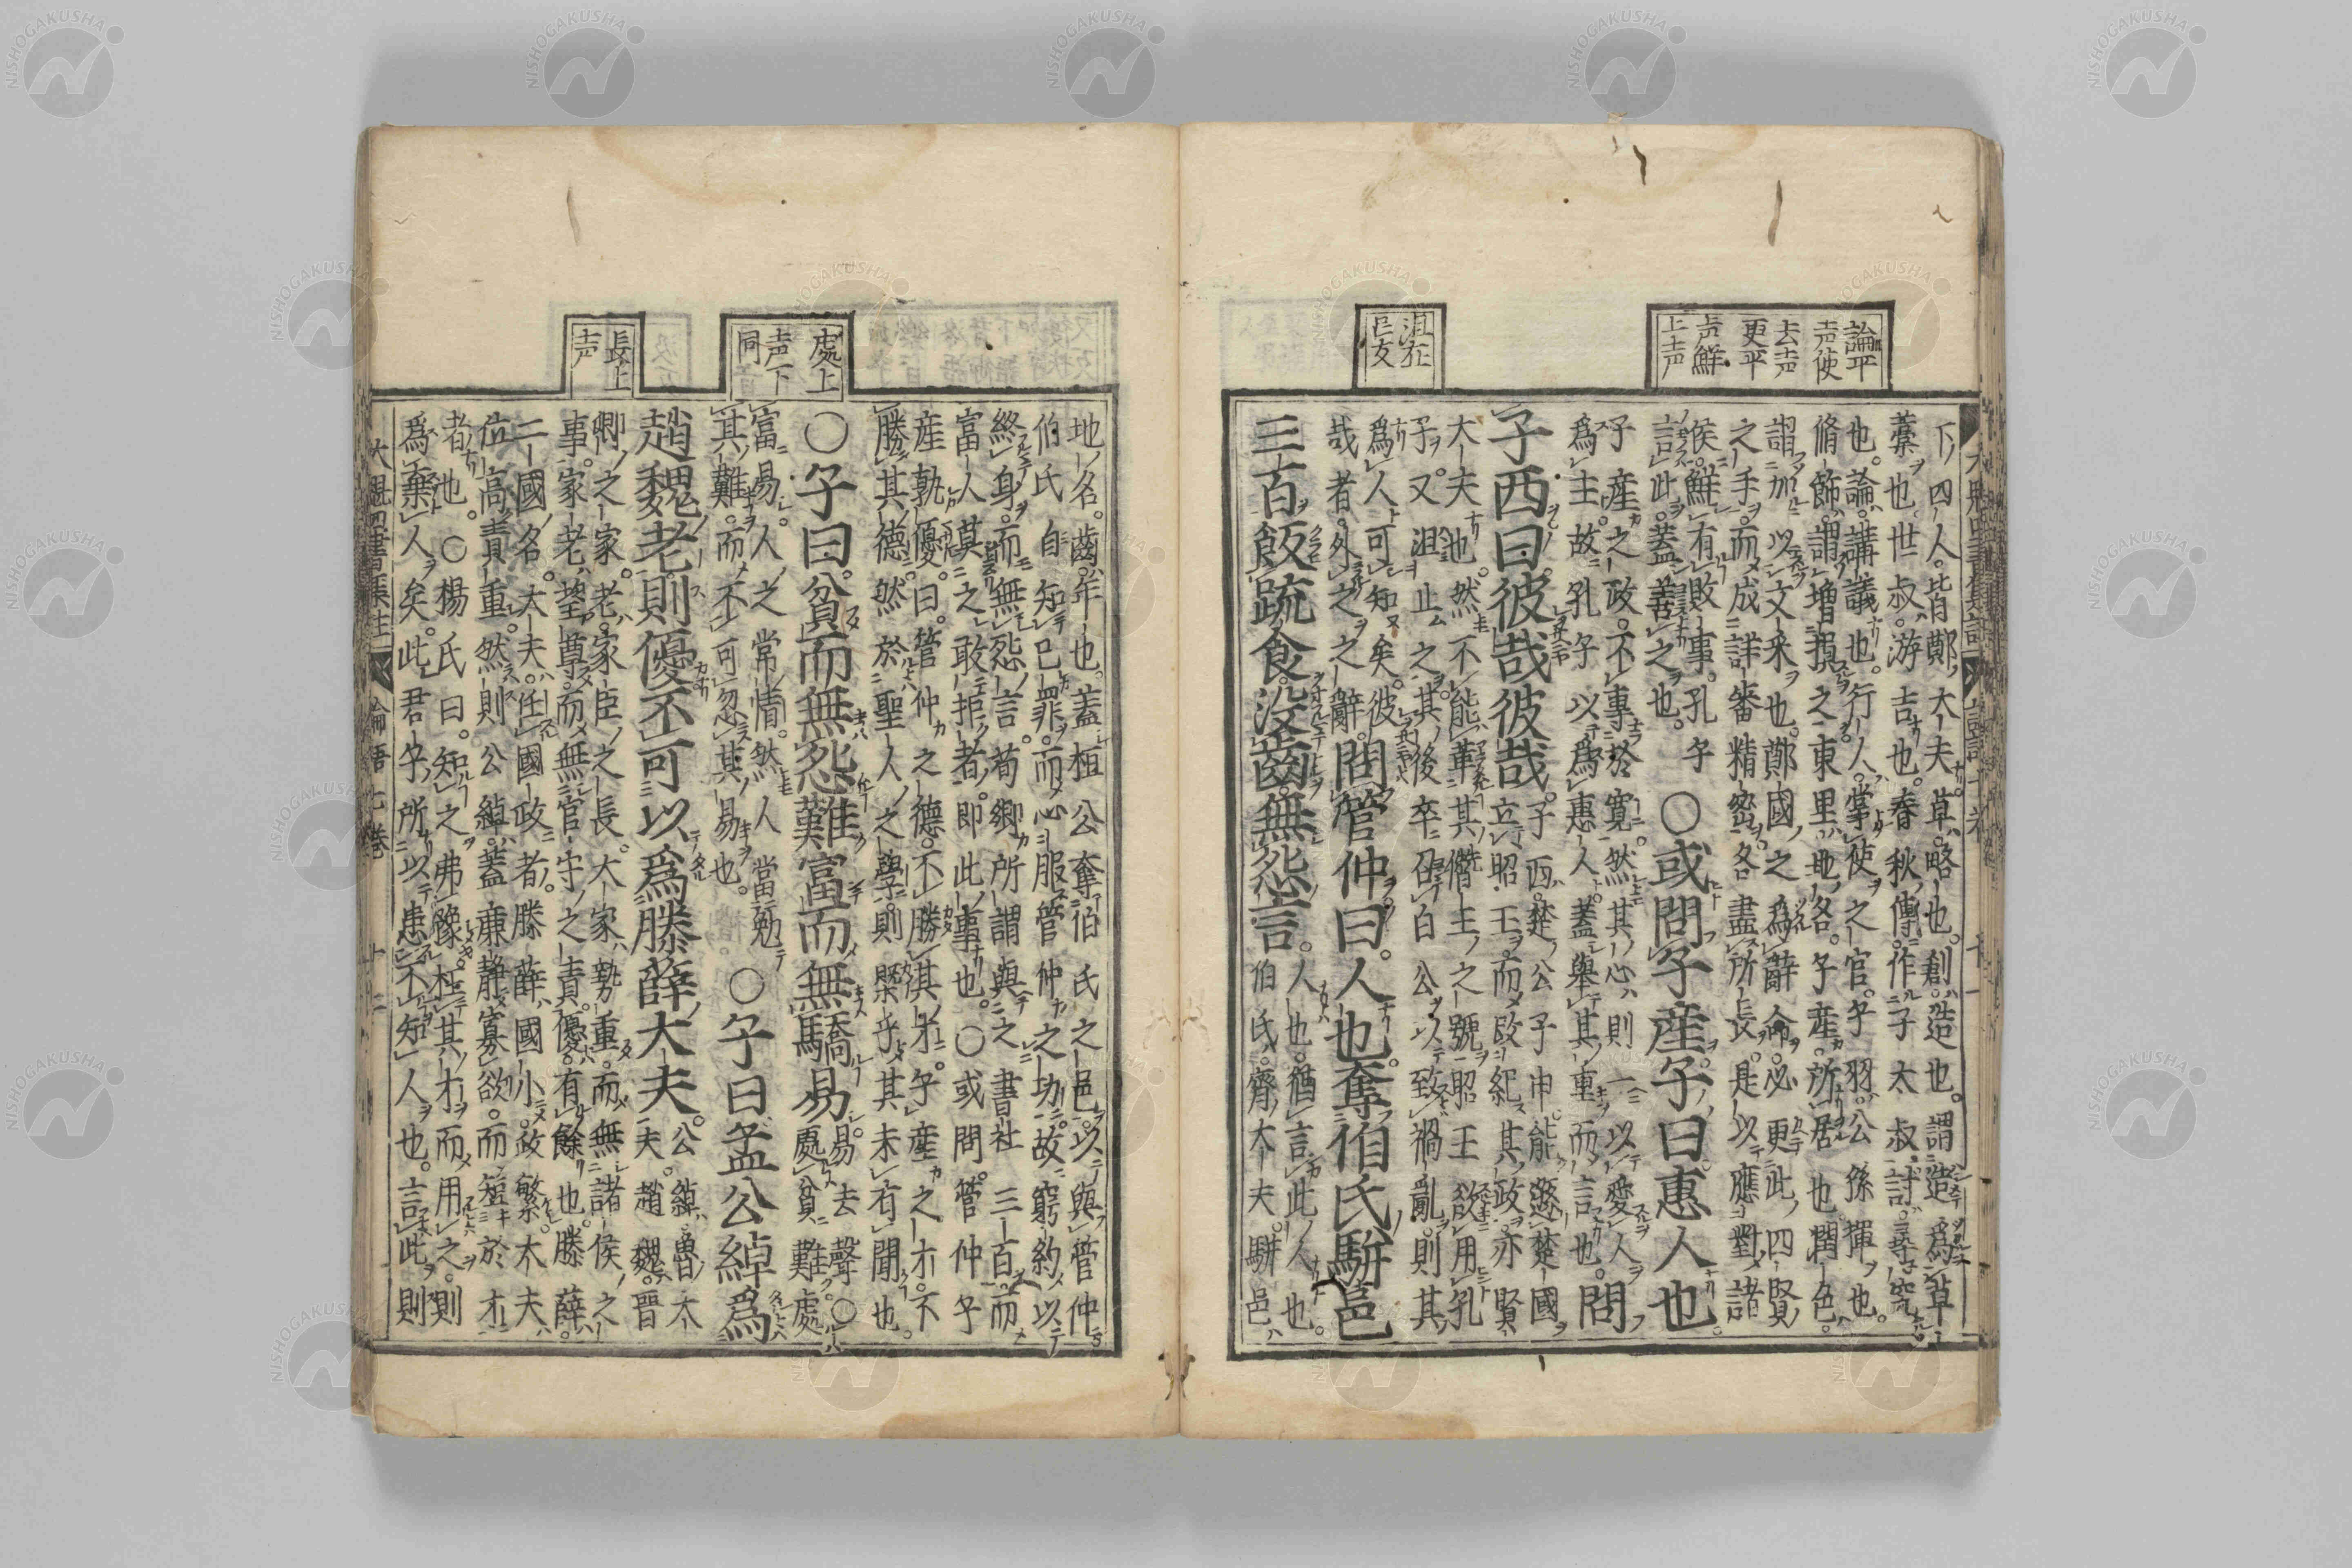 論平
声使
去声
更平
声鮮
上声
沮在
呂反
下ノ四人皆鄭ノ大夫草略也創造也謂造爲草
藁也世叔游吉也春秋傳作子太叔討尋究
也論講議也行人掌使之官子羽公孫揮也
脩飾謂增損之東里地名子產所居也潤色
謂加以文采也鄭國之爲辭命必更此四賢
之手而成詳審精密各盡所長是以應對諸
侯鮮有敗事孔子
言此蓋善之也
〇或問子産子曰惠人也
子産之政不專於寬然其心則一以愛人
爲主故孔子以爲惠人蓋舉其重而言也
問
子西曰彼哉彼哉
子西楚公子申能遜楚國
立昭王而改紀其政亦賢
大夫也然不能革其僭王之號昭王欲用孔
子又沮止之其後卒召白公以致禍亂則其
爲人可知矣彼
哉者外之之辭
問管仲曰人也奪伯氏駢邑
三百飯疏食沒齒無怨言
人也猶言此人也
伯氏齊大夫駢邑
處上
声下
同
長上
声
地名齒年也蓋桓公奪伯氏之邑以與管仲
伯氏自知己罪而心服管仲之功故窮約以
終身而無怨言荀卿所謂與之書社三百而
富人莫之敢拒者即此事也〇或問管仲子
産孰優曰管仲之德不勝其才子産之才不
勝其德然於聖人之學則槩乎其未有聞也
〇子曰貧而無怨難富而無驕易
易去聲〇
處貧難處
富易人之常情然人當勉
其難而不可忽其易也
〇子曰孟公綽爲
趙魏老則優不可以爲滕薛大夫
公綽魯大
夫趙魏晉
卿之家老家臣之長大家勢重而無諸侯之
事家老望尊而無官守之責優有餘也滕薛
二國名大夫任國政者滕薛國小政繁大夫
位高責重然則公綽蓋廉靜寡欲而短於才
者也〇楊氏曰知之弗豫枉其才而用之則
爲棄人矣此君子所以患不知人也言此則
論語七巻
十二